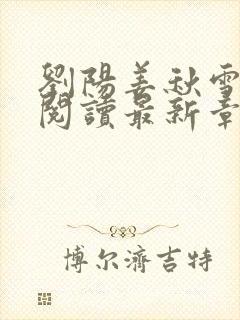 劉陽姜秋雪
閱讀最新章
博尔濟吉特